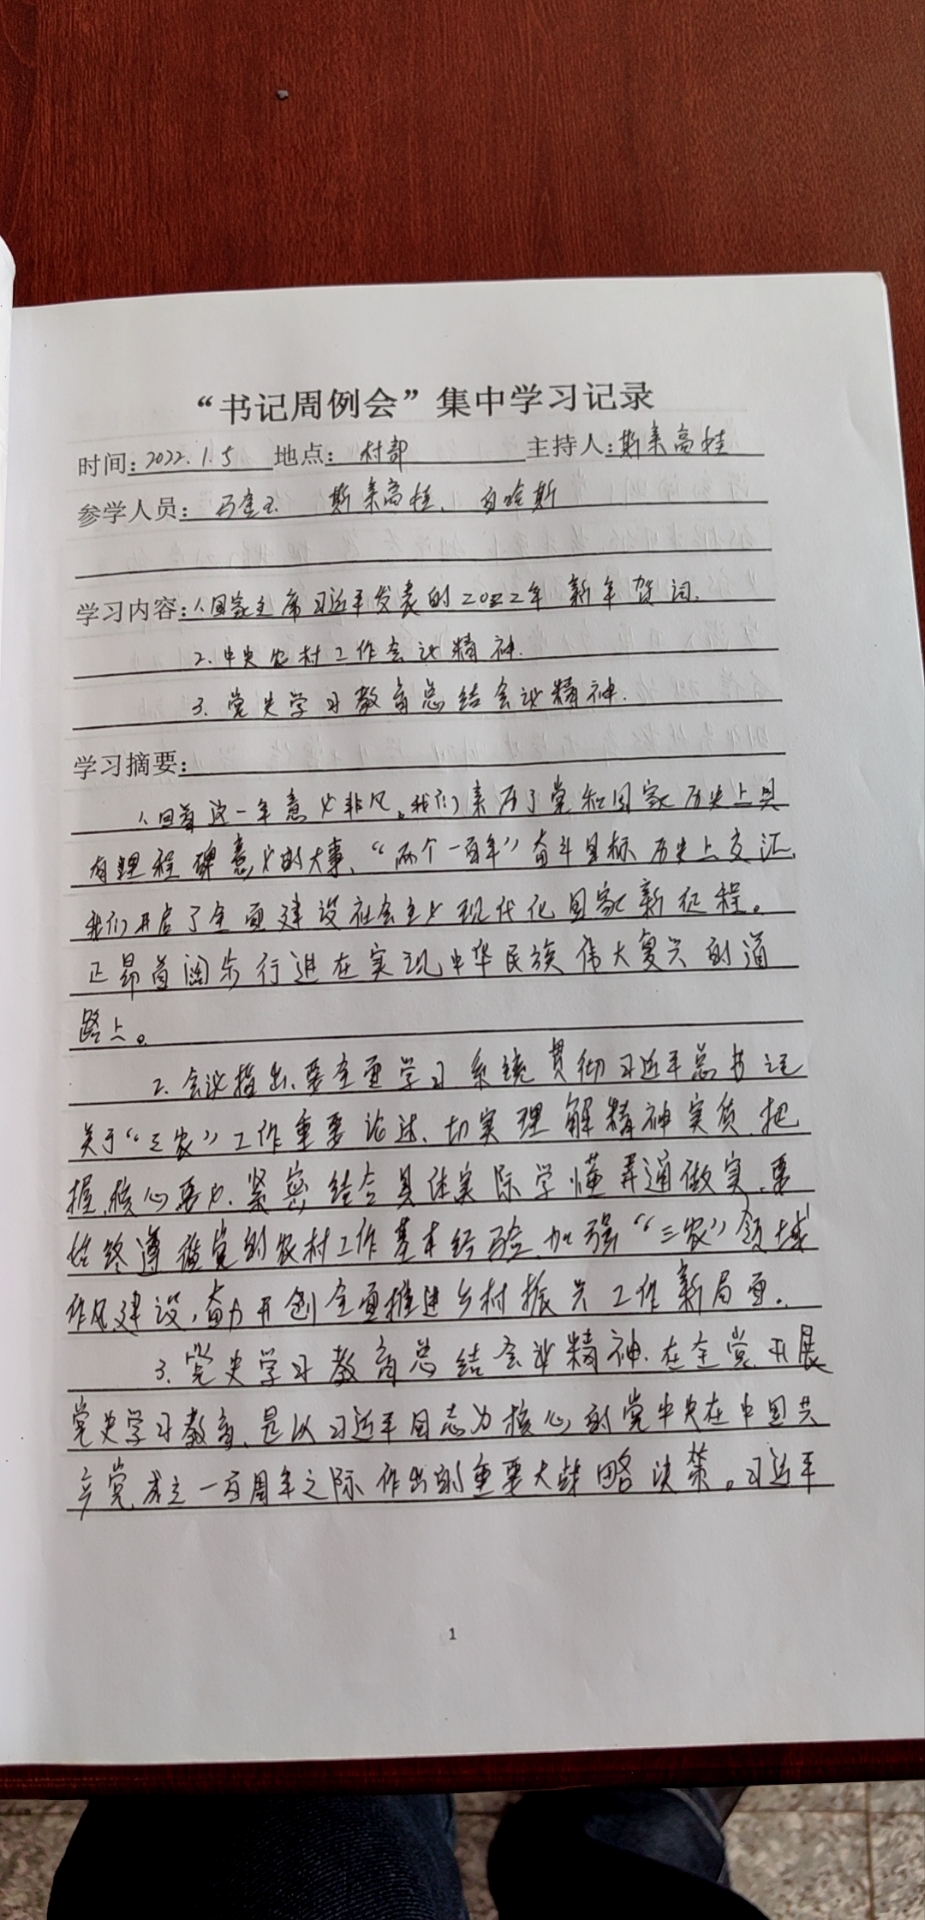 “书记周例会”集中学习记录
时间:2022.1.5 地点:村部 主持人:斯来高娃
参学人员: 斯来高娃、
学习内容:1.国家主席习近平发表的2022年新年贺词.
2.中央农村工作会议精神.
3.党史学习教育总结会议精神.
学习摘要:
1.回首这一年意义非凡。我们亲历了党和国家历史上具
有里程碑意义的大事、“两个一百年”奋斗目标历史上交汇,
我们开启了全面建设社会主义现代化国家新征程。
正昂首阔步行进在实现中华民族伟大复兴的道
路上。
2.会议指出,要全面学习系统贯彻习近平总书记
关于“三农”工作重要论述、切实理解精神实质,把
握核心要义,紧密结合具体实际学懂弄通做实,要
始终遵循党的农村工作基本经验,加强“三农”领域
作风建设,奋力开创全面推进乡村振兴工作新局面.
3.党史学习教育总结会议精神.在全党开展
党史学习教育,是以习近平同志为核心的党中央在中国共
产党成立一百周年之际作出的重要大战略决策。习近平
1